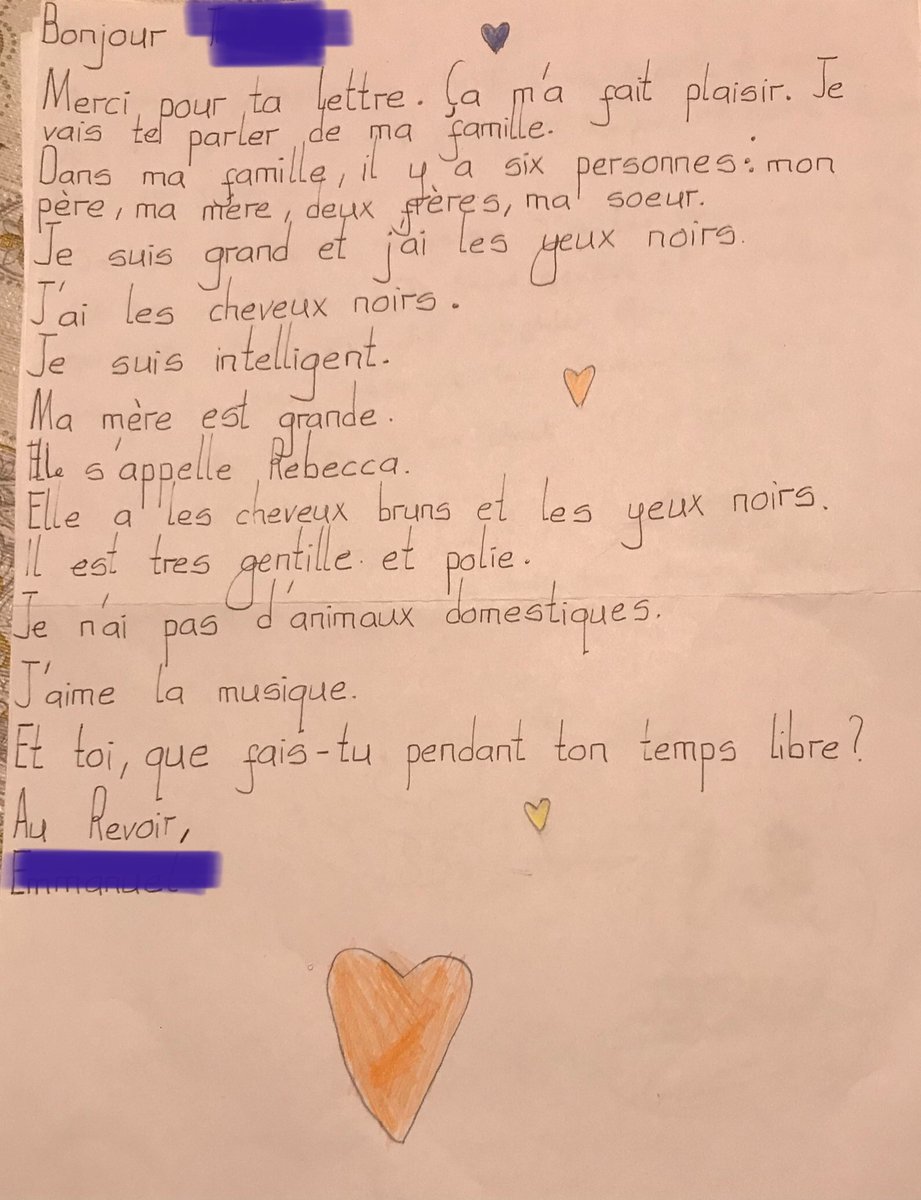 Bonjour
Merci pour ta lettre. Ça m'a fait plaisir. Je
vais te parler de ma famille.
Dans ma famille, il y a six personnes: mon
père, ma mère, deux frères, ma soeur.
Je suis grand et j'ai les yeux noirs.
J'ai les cheveux noirs.
Je suis intelligent.
Ma mère est grande.
Elle s'appelle Rebecca.
Elle a les cheveux bruns et les yeux noirs.
Il est tres gentille et polie.
Je n'ai pas d'animaux domestiques.
J'aime la musique.
Et toi, que fais-tu pendant ton temps libre?
Au Revoir,